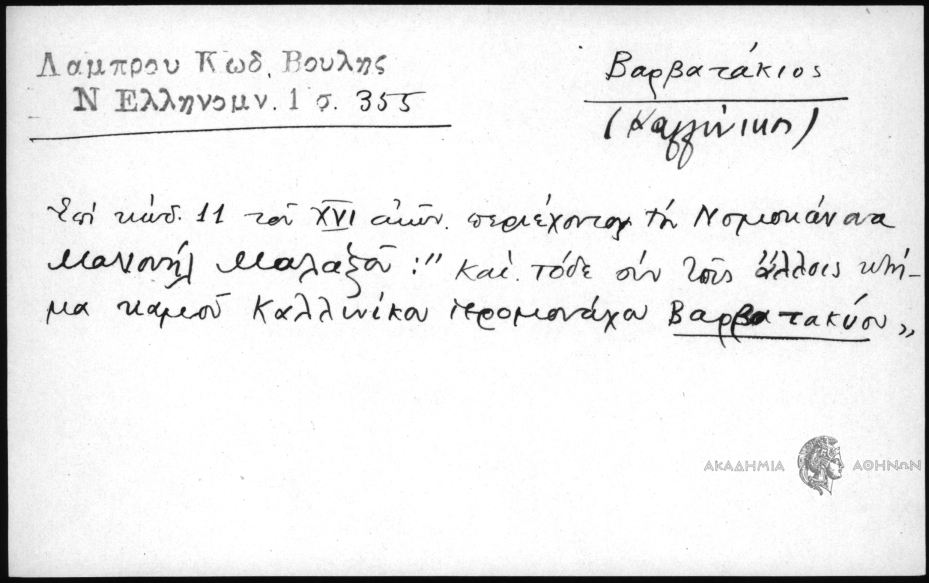 Λαμπρου Κωδ. Βουλης
Ν Ελληνομν. 1 σ. 355
Βαρβατάκιος
(Καλλίνικος)
Ἐπί κώδ. 11 τοῦ XVI αἰῶν. περιέχοντος τόν Νομοκάνονα
Μανουήλ Μαλαξοῦ: " Καί τόδε σύν τοῖς ἄλλοις κτῆ-
μα καμοῦ Καλλινίκου ἱερομονάχου Βαρβατακύου „
ΑΚΑΔΗΜΙΑ ΑΘΗΝΩΝ